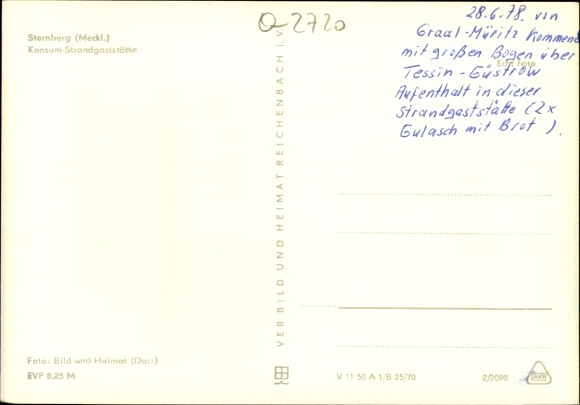 Sternberg (Meckl.)
Konsum-Strandgaststätte
Q-2720
28.6.78. von
Graal-Müritz kommend
mit großen Bogen über
Echt Foto
Tessin-Güstrow
Aufenthalt in dieser
Strandgaststätte (2x
Gulasch mit Brot).
VEB BILD UND HEIMAT REICHENBACH I. V.
Foto: Bild und Heimat (Darr)
EVP 0,25 M
V 11 50 A 1/B 25/70
2/2098